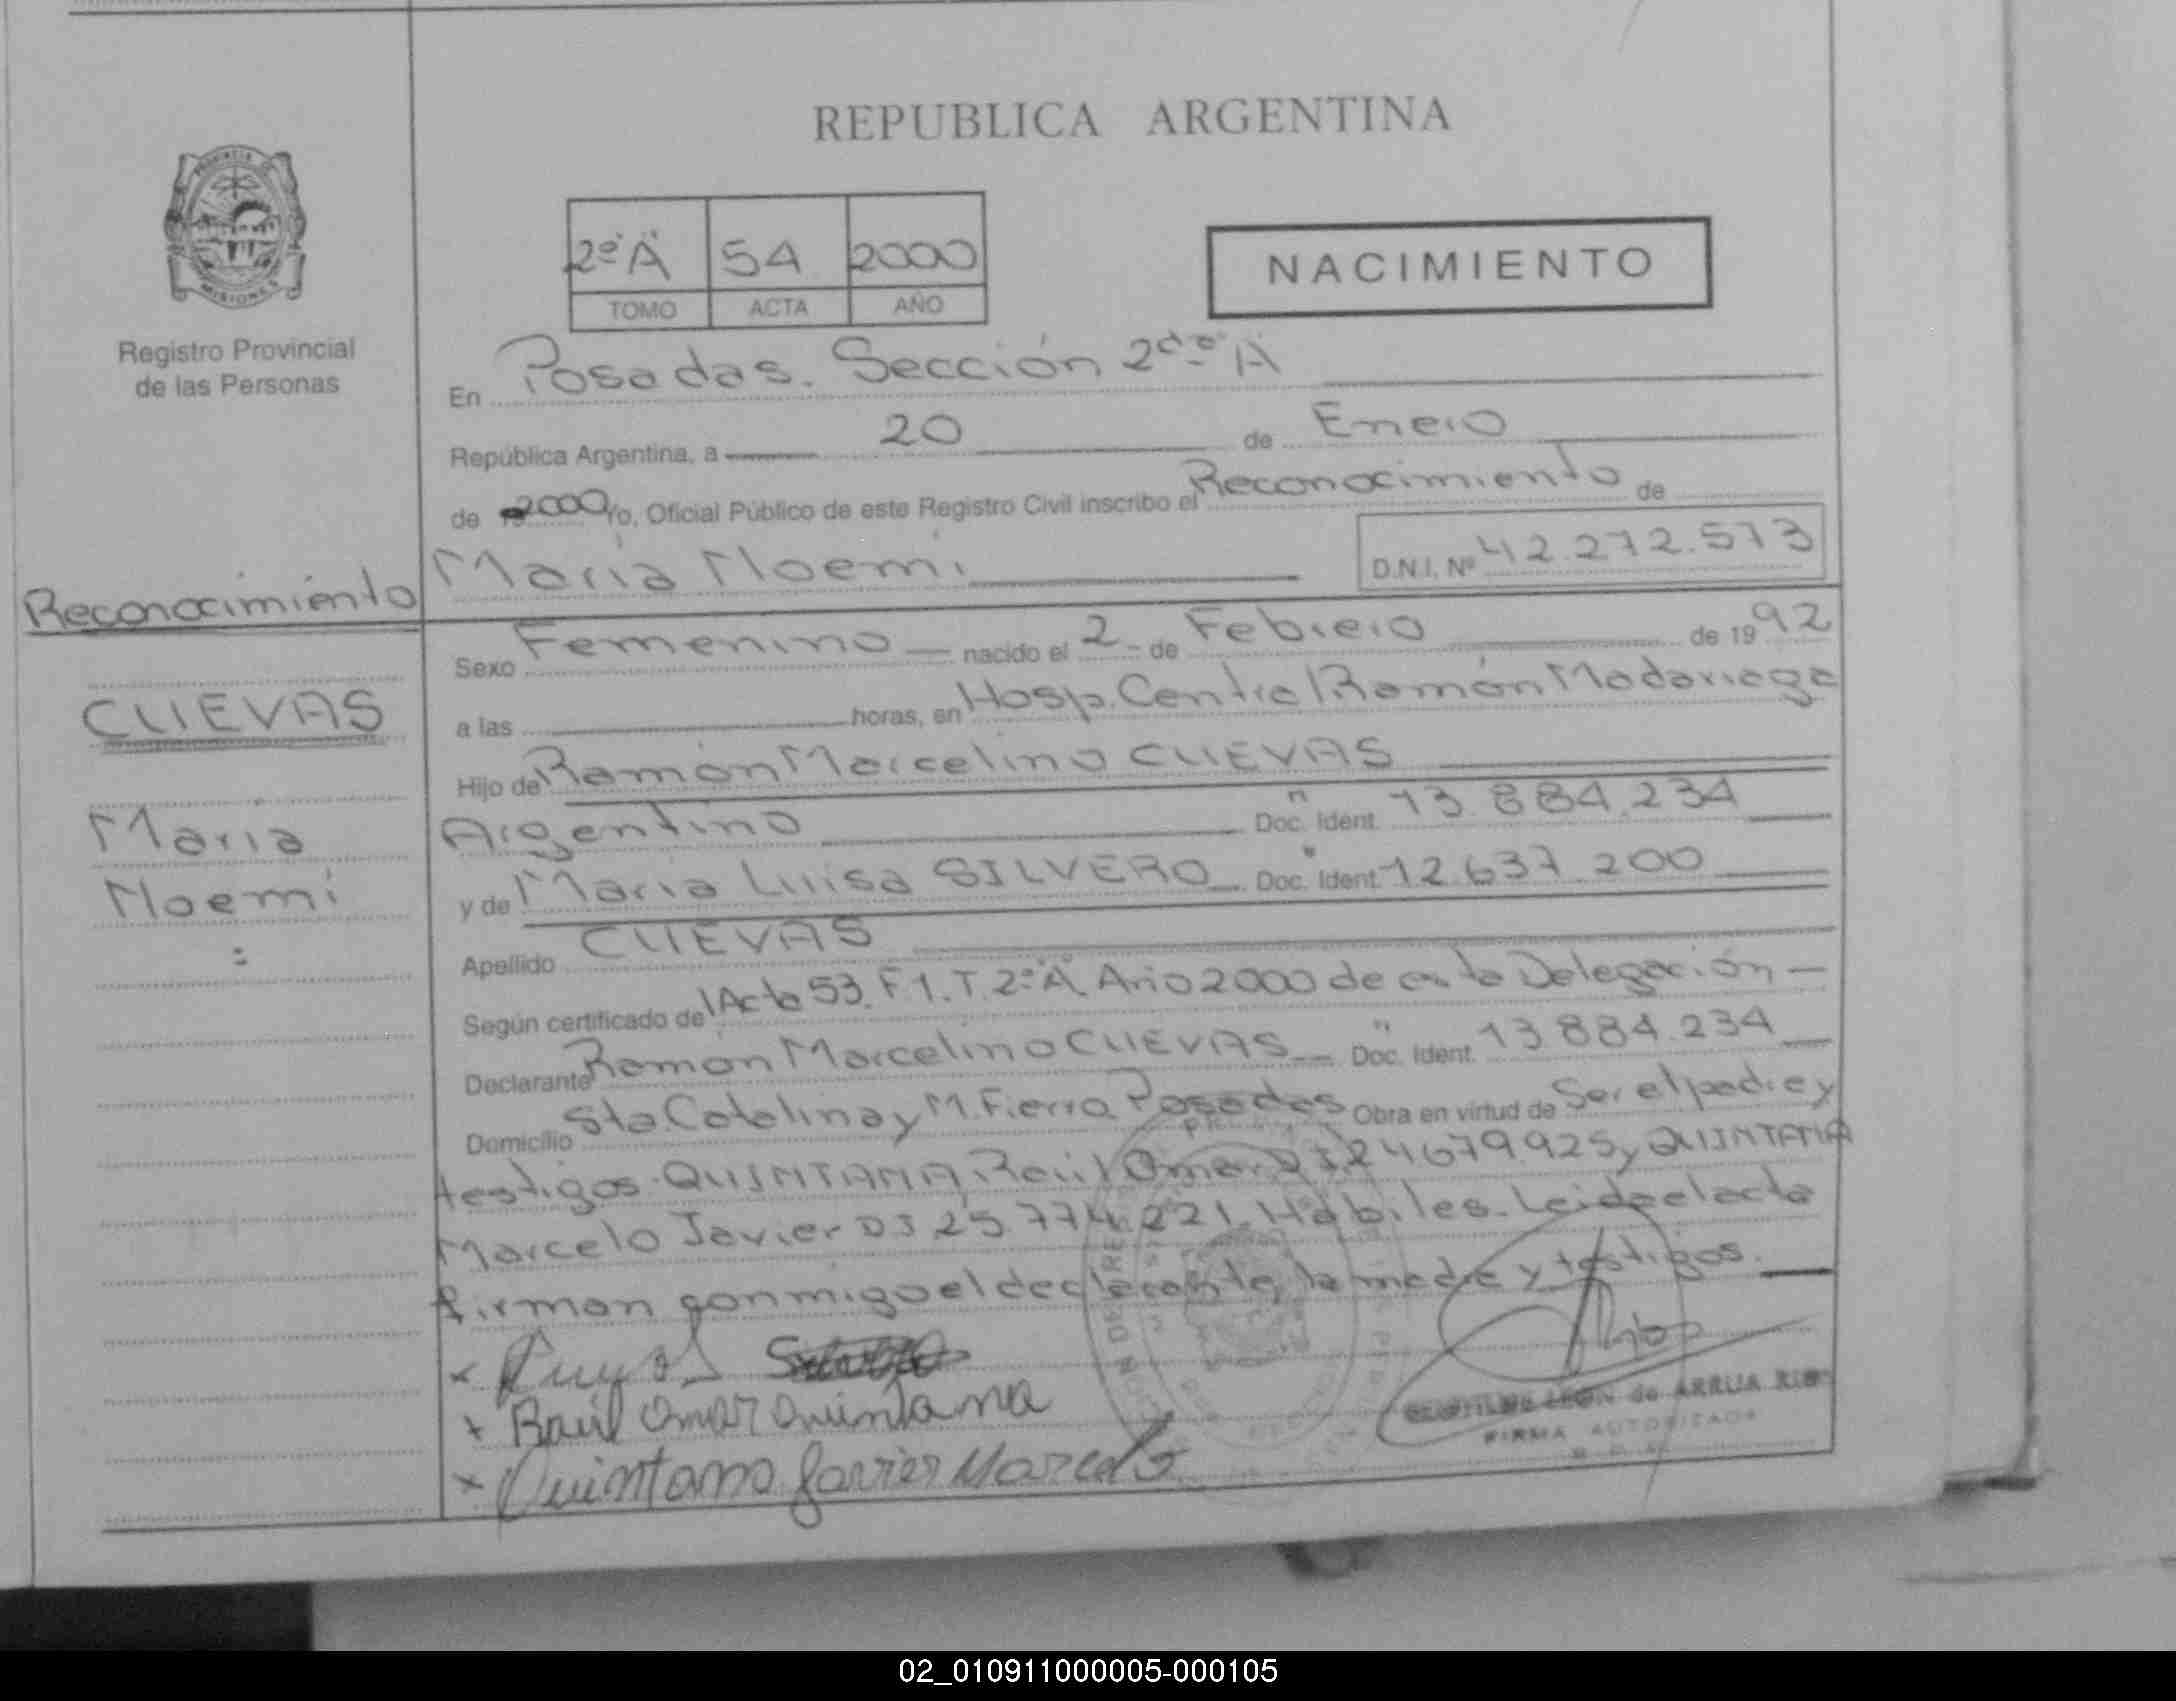 REPUBLICA ARGENTINA
PROVINCIA DE
MISIONES
Registro Provincial
de las Personas
2º "A" 54 2000
TOMO ACTA AÑO
NACIMIENTO
En Posadas. Sección 2da "A"
República Argentina, a 20 de Enero
de 2000 yo, Oficial Público de este Registro Civil inscribo el Reconocimiento de
Maria Noemi D.N.I. Nº 42.272.573
Reconocimiento
CUEVAS
Maria
Noemi
Sexo Femenino nacido el 2 de Febrero de 1992
a las horas, en Hosp. Central Ramón Madariaga
Hijo de Ramón Marcelino CUEVAS
Argentino Doc. Ident. 13.884.234
y de Maria Luisa SILVERO Doc. Ident. 12.637.200
Apellido CUEVAS
Según certificado de Acta 53. F 1. T. 2º "A" Año 2000 de esta Delegación
Declarante Ramón Marcelino CUEVAS Doc. Ident. 13.884.234
Domicilio Sta. Catalina y M. Fierro Posadas Obra en virtud de Ser el padre y
testigos. QUINTANA, Raúl Omar DI 24679.925 y QUINTANA
Marcelo Javier DI 25.774.221. Hábiles. Leida el acta
firman conmigo el declarante, la madre y testigos.
x
+ Raúl Omar Quintana
x Quintana Javier Marcelo
LEON de ARRUA
FIRMA AUTORIZADA
02_010911000005-000105